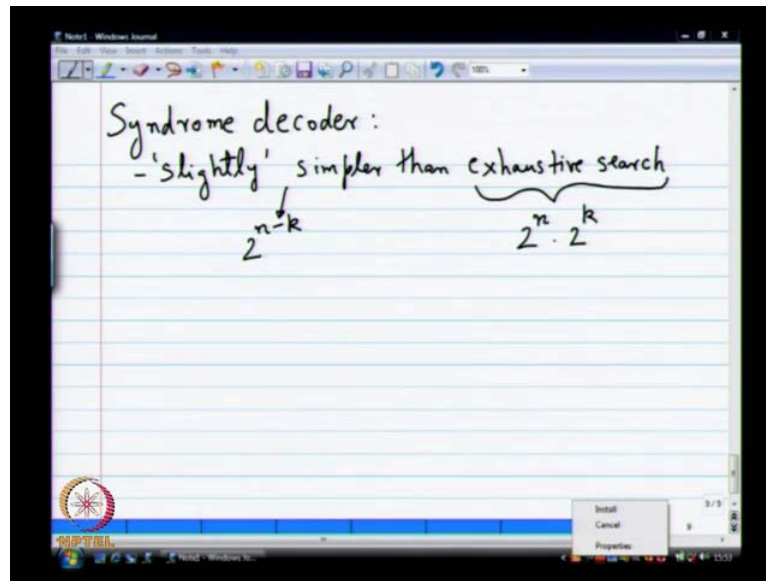 Note1 - Windows Journal
File Edit View Insert Actions Tools Help
100%
Syndrome decoder :
- 'slightly' simpler than exhaustive search
2^{n-k} 2^n · 2^k
Install
Cancel
Properties
9/9
9
NPTEL
Note1 - Windows Jo...
15:53